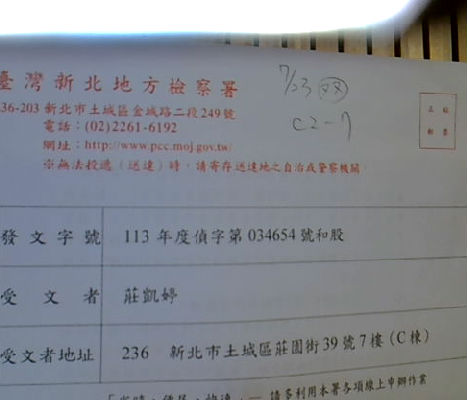 臺灣新北地方檢察署
236-203 新北市土城區金城路二段249號
電話：(02)2261-6192
網址：http://www.pcc.moj.gov.tw/
※無法投遞（送達）時，請寄存送達地之自治或警察機關
7/23
C2-7
發文字號 113 年度偵字第 034654 號和股
受文者 莊凱婷
受文者地址 236 新北市土城區莊園街39號7樓（C棟）
請多利用本署各項線上申辦作業